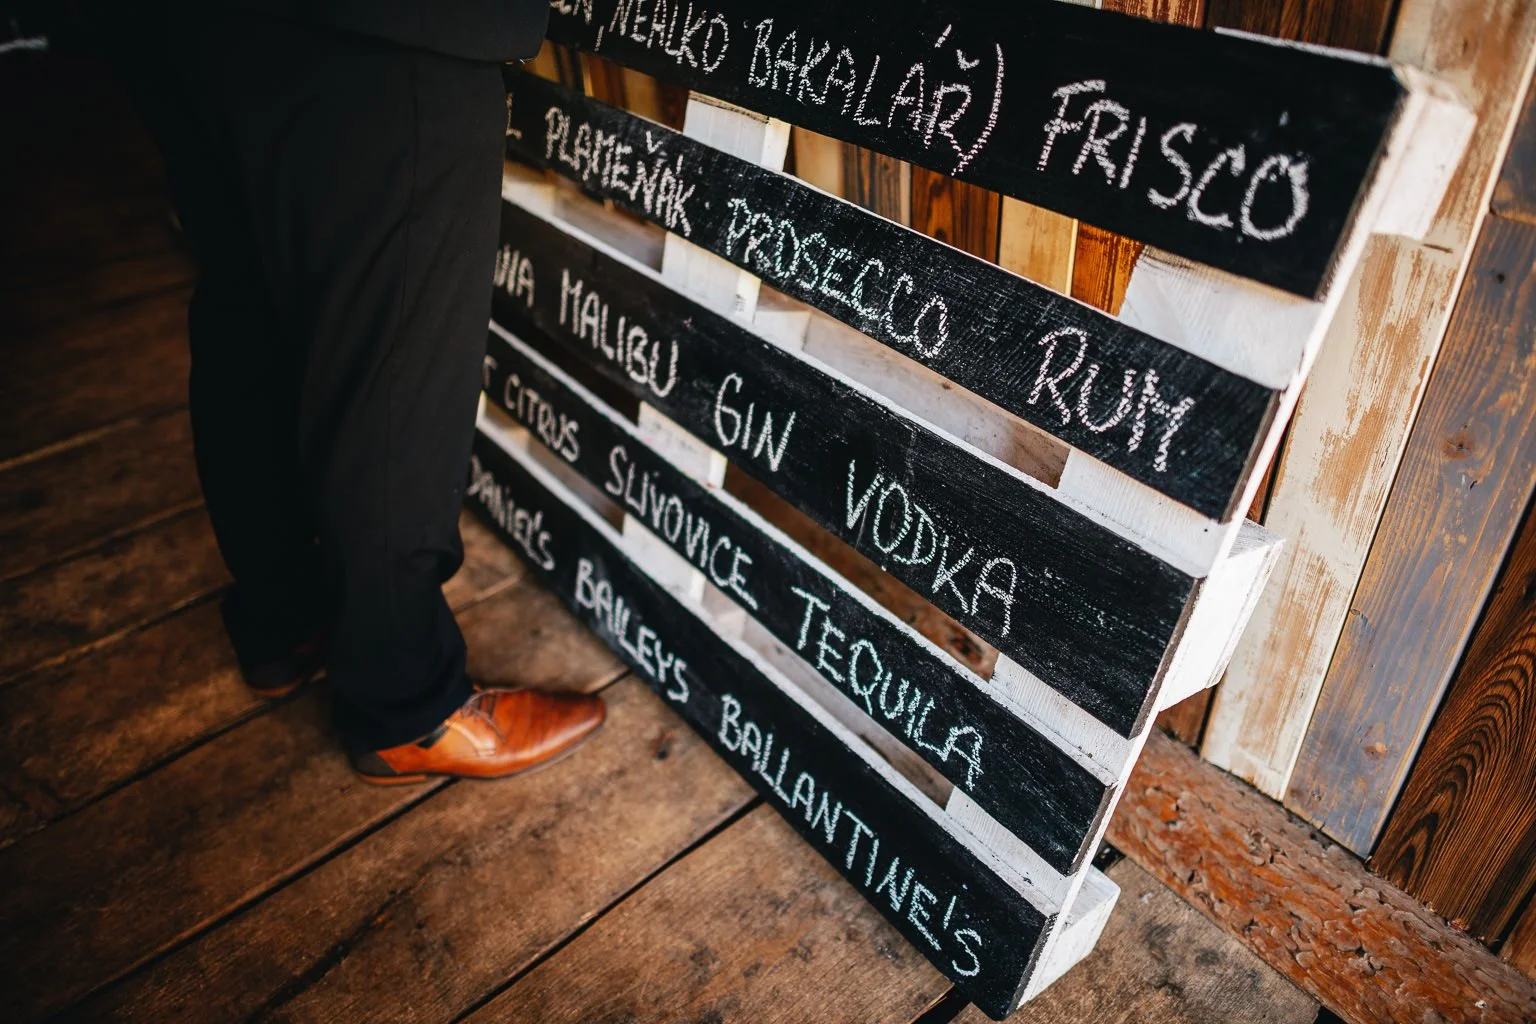 NEALKO BAKALÁŘ) FRISCO
PLAMEŇÁK PROSECCO RUM
MALIBU GIN VODKA
CITRUS SLIVOVICE TEQUILA
DANIEL'S BAILEYS BALLANTINE'S